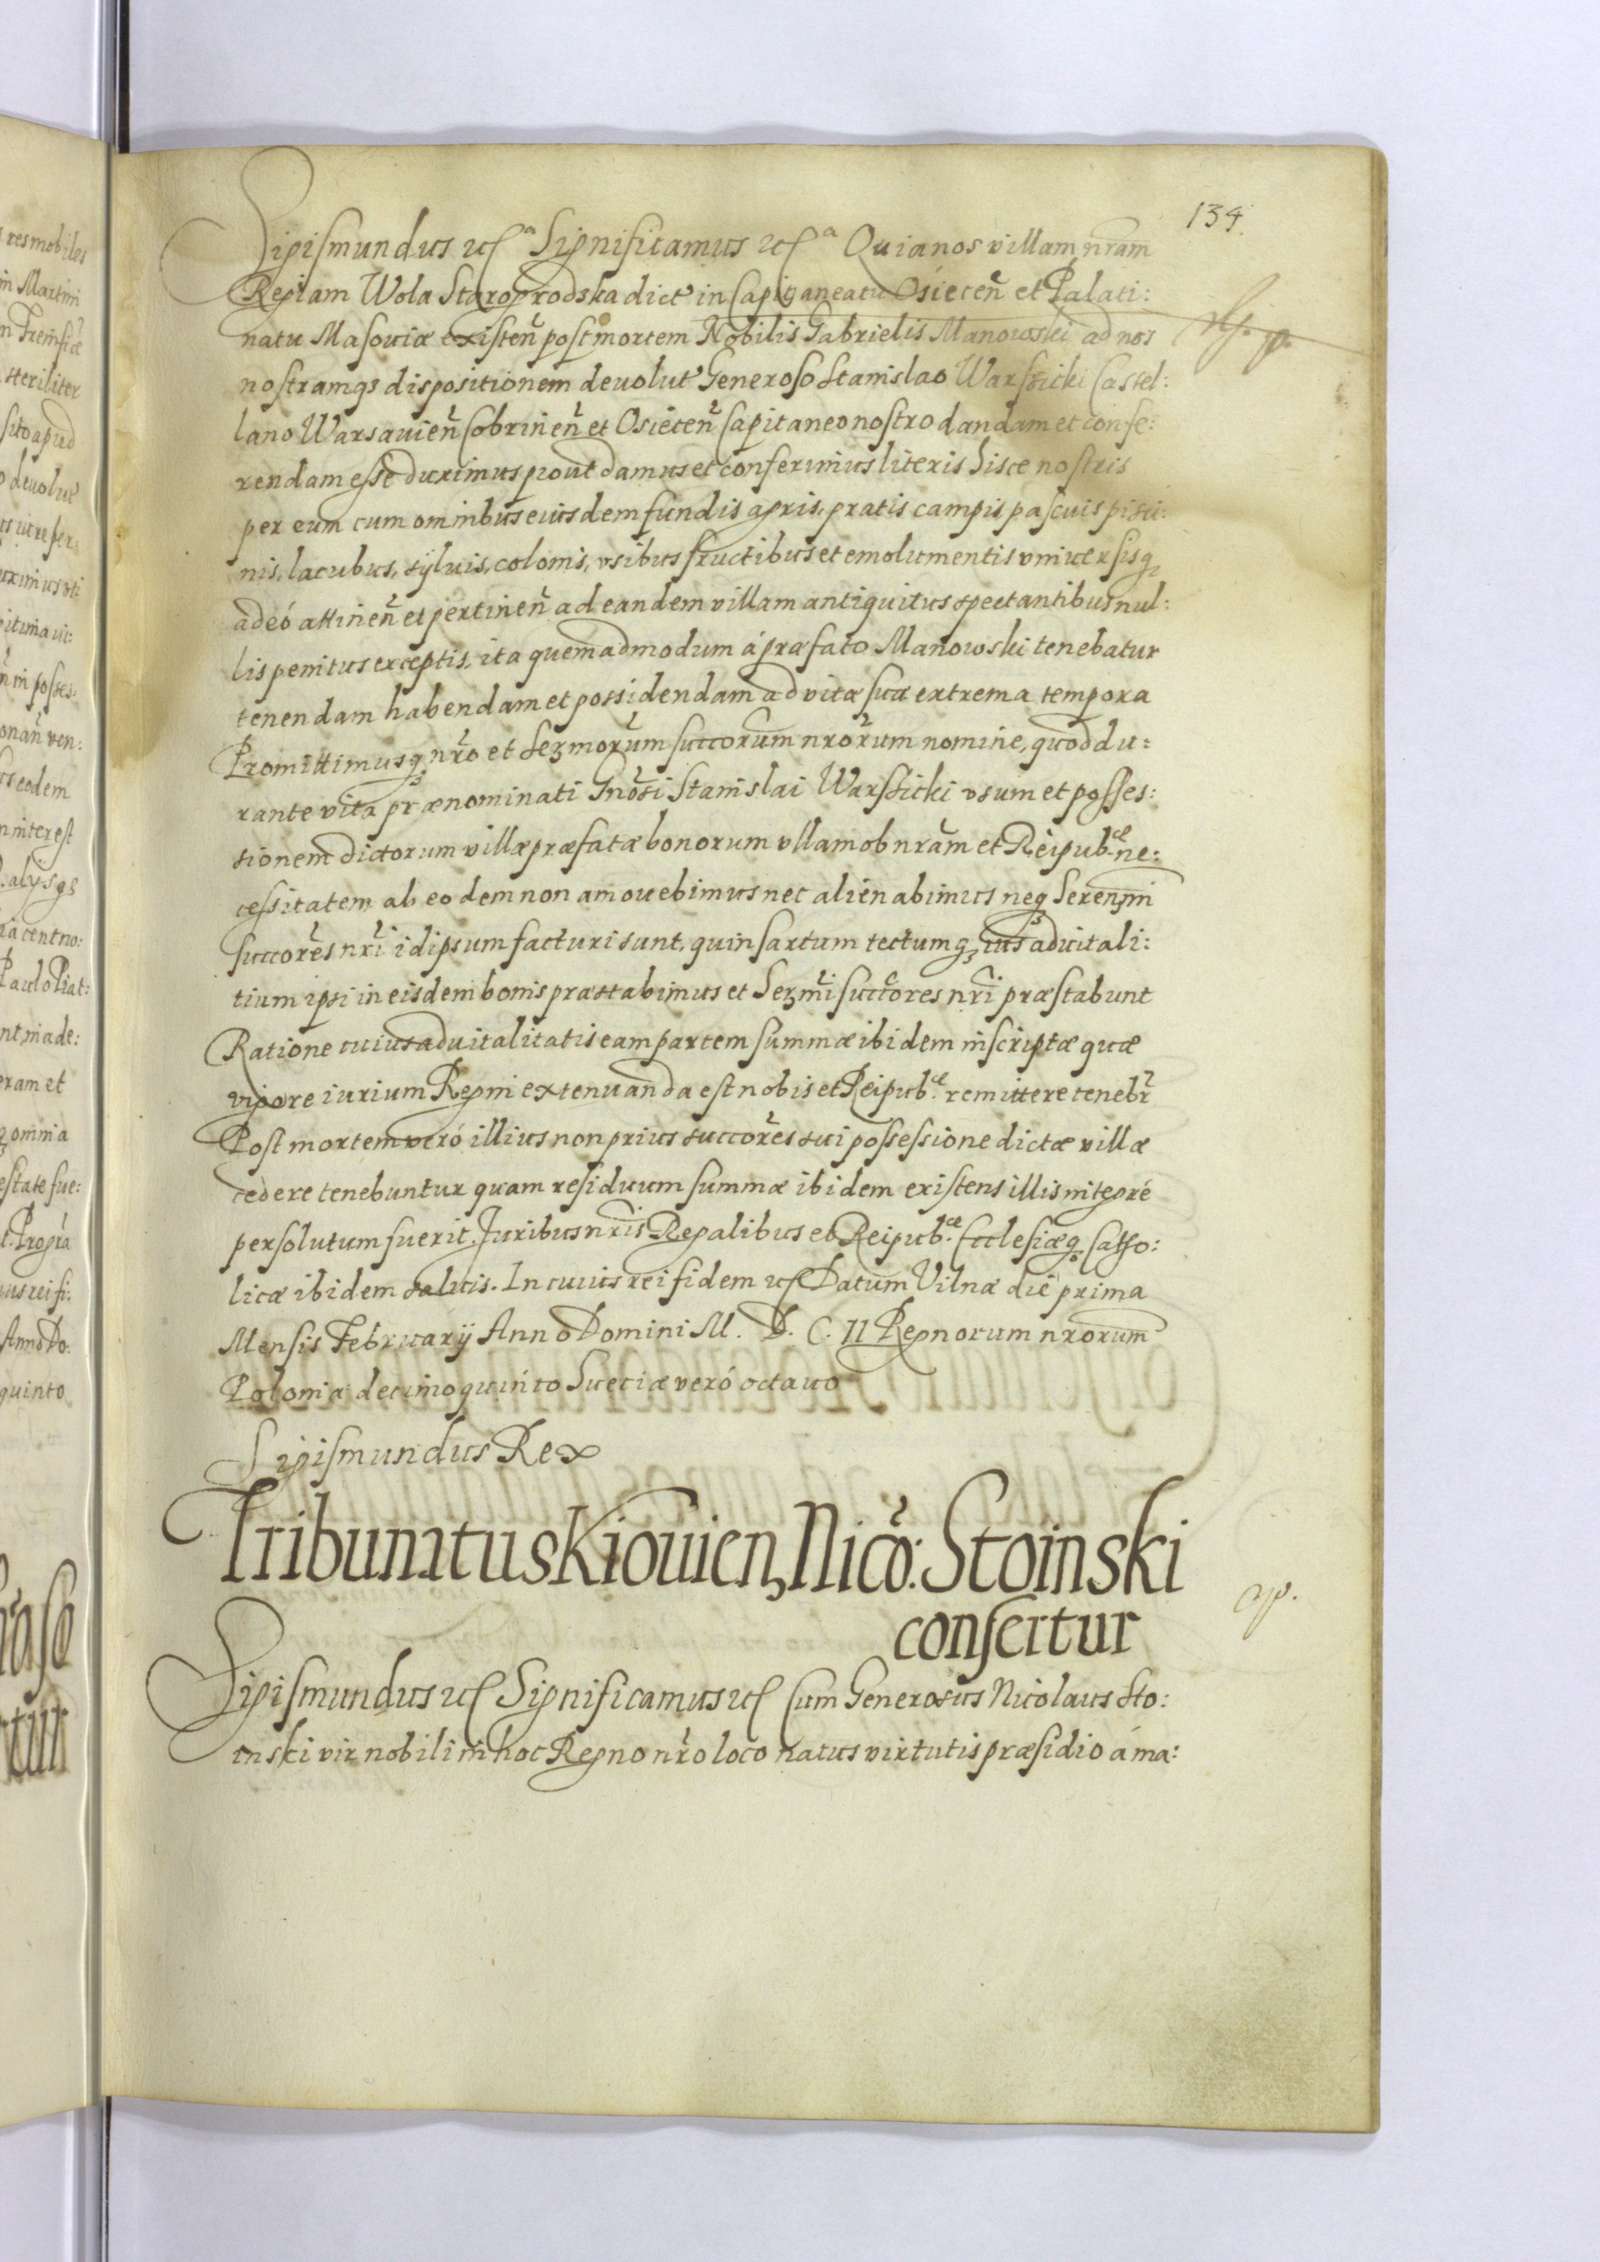 134.
Sigismundus etc Significamus etc Quia nos villam nram
Regiam Wola Starogrodska dict in Capitaneatu Osiecen et Palati:
natu Masouiæ existen post mortem Nobilis Gabrielis Manowski ad nos
nostramq3 dispositionem deuolut Generoso Stanislao Warszicki Castel:
lano Warsauien Cobrinen et Osiecen Capitaneo nostro dandam et confe:
rendam esse duximus prout damus et conferimus literis hisce nostris
per eum cum omnibus eiusdem fundis agris, pratis campis pascuis pisci:
nis, lacubus, syluis, colonis, vsibus fructibus et emolumentis vniuersisq3
adeó attinen et pertinen ad eandem villam antiquitus spectantibus nul:
lis penitus exceptis, ita quemadmodum á præfato Manowski tenebatur
tenendam habendam et possidendam ad vitæ suæ extrema tempora
Promittimusq3 nro et Ser3morum succorum nrorum nomine, quod du:
rante vita prænominati Gnosi Stanislai Warszicki vsum et posses:
sionem dictorum villæ præfatæ bonorum vllam ob nram et Reipub.cæ ne:
cessitatem ab eodem non amouebimus nec alienabimus neq3 Seren3mi
succores nri id ipsum facturi sunt, quin sartum tectumq3 ius aduitali:
tium ipsi in eisdem bonis præstabimus et Ser3mi succores nri præstabunt
Ratione cuius aduitalitatis eam partem summæ ibidem inscriptæ quæ
vigore iurium Regni extenuanda est nobis et Reipub.cæ remittere tenebr
Post mortem veró illius non prius succores sui possessione dictæ villæ
cedere tenebuntur quam residuum summæ ibidem existens illis integré
persolutum fuerit. Juribus nris Regalibus et Reipub.cæ Ecclesiæq3 Catho:
licæ ibidem saluis. In cuius rei fidem etc Datum Vilnæ die prima
Mensis February Anno Domini M. D. C. II Regnorum nrorum
Poloniæ decimoquinto Sueciæ veró octauo
Sigismundus Rex
Tribunatus Kiouien3 Nico: Stoinski
confertur
Sigismundus etc Significamus etc Cum Generosus Nicolaus Sto:
inski vir nobili in hoc Regno nro loco natus virtutis præsidio á ma: